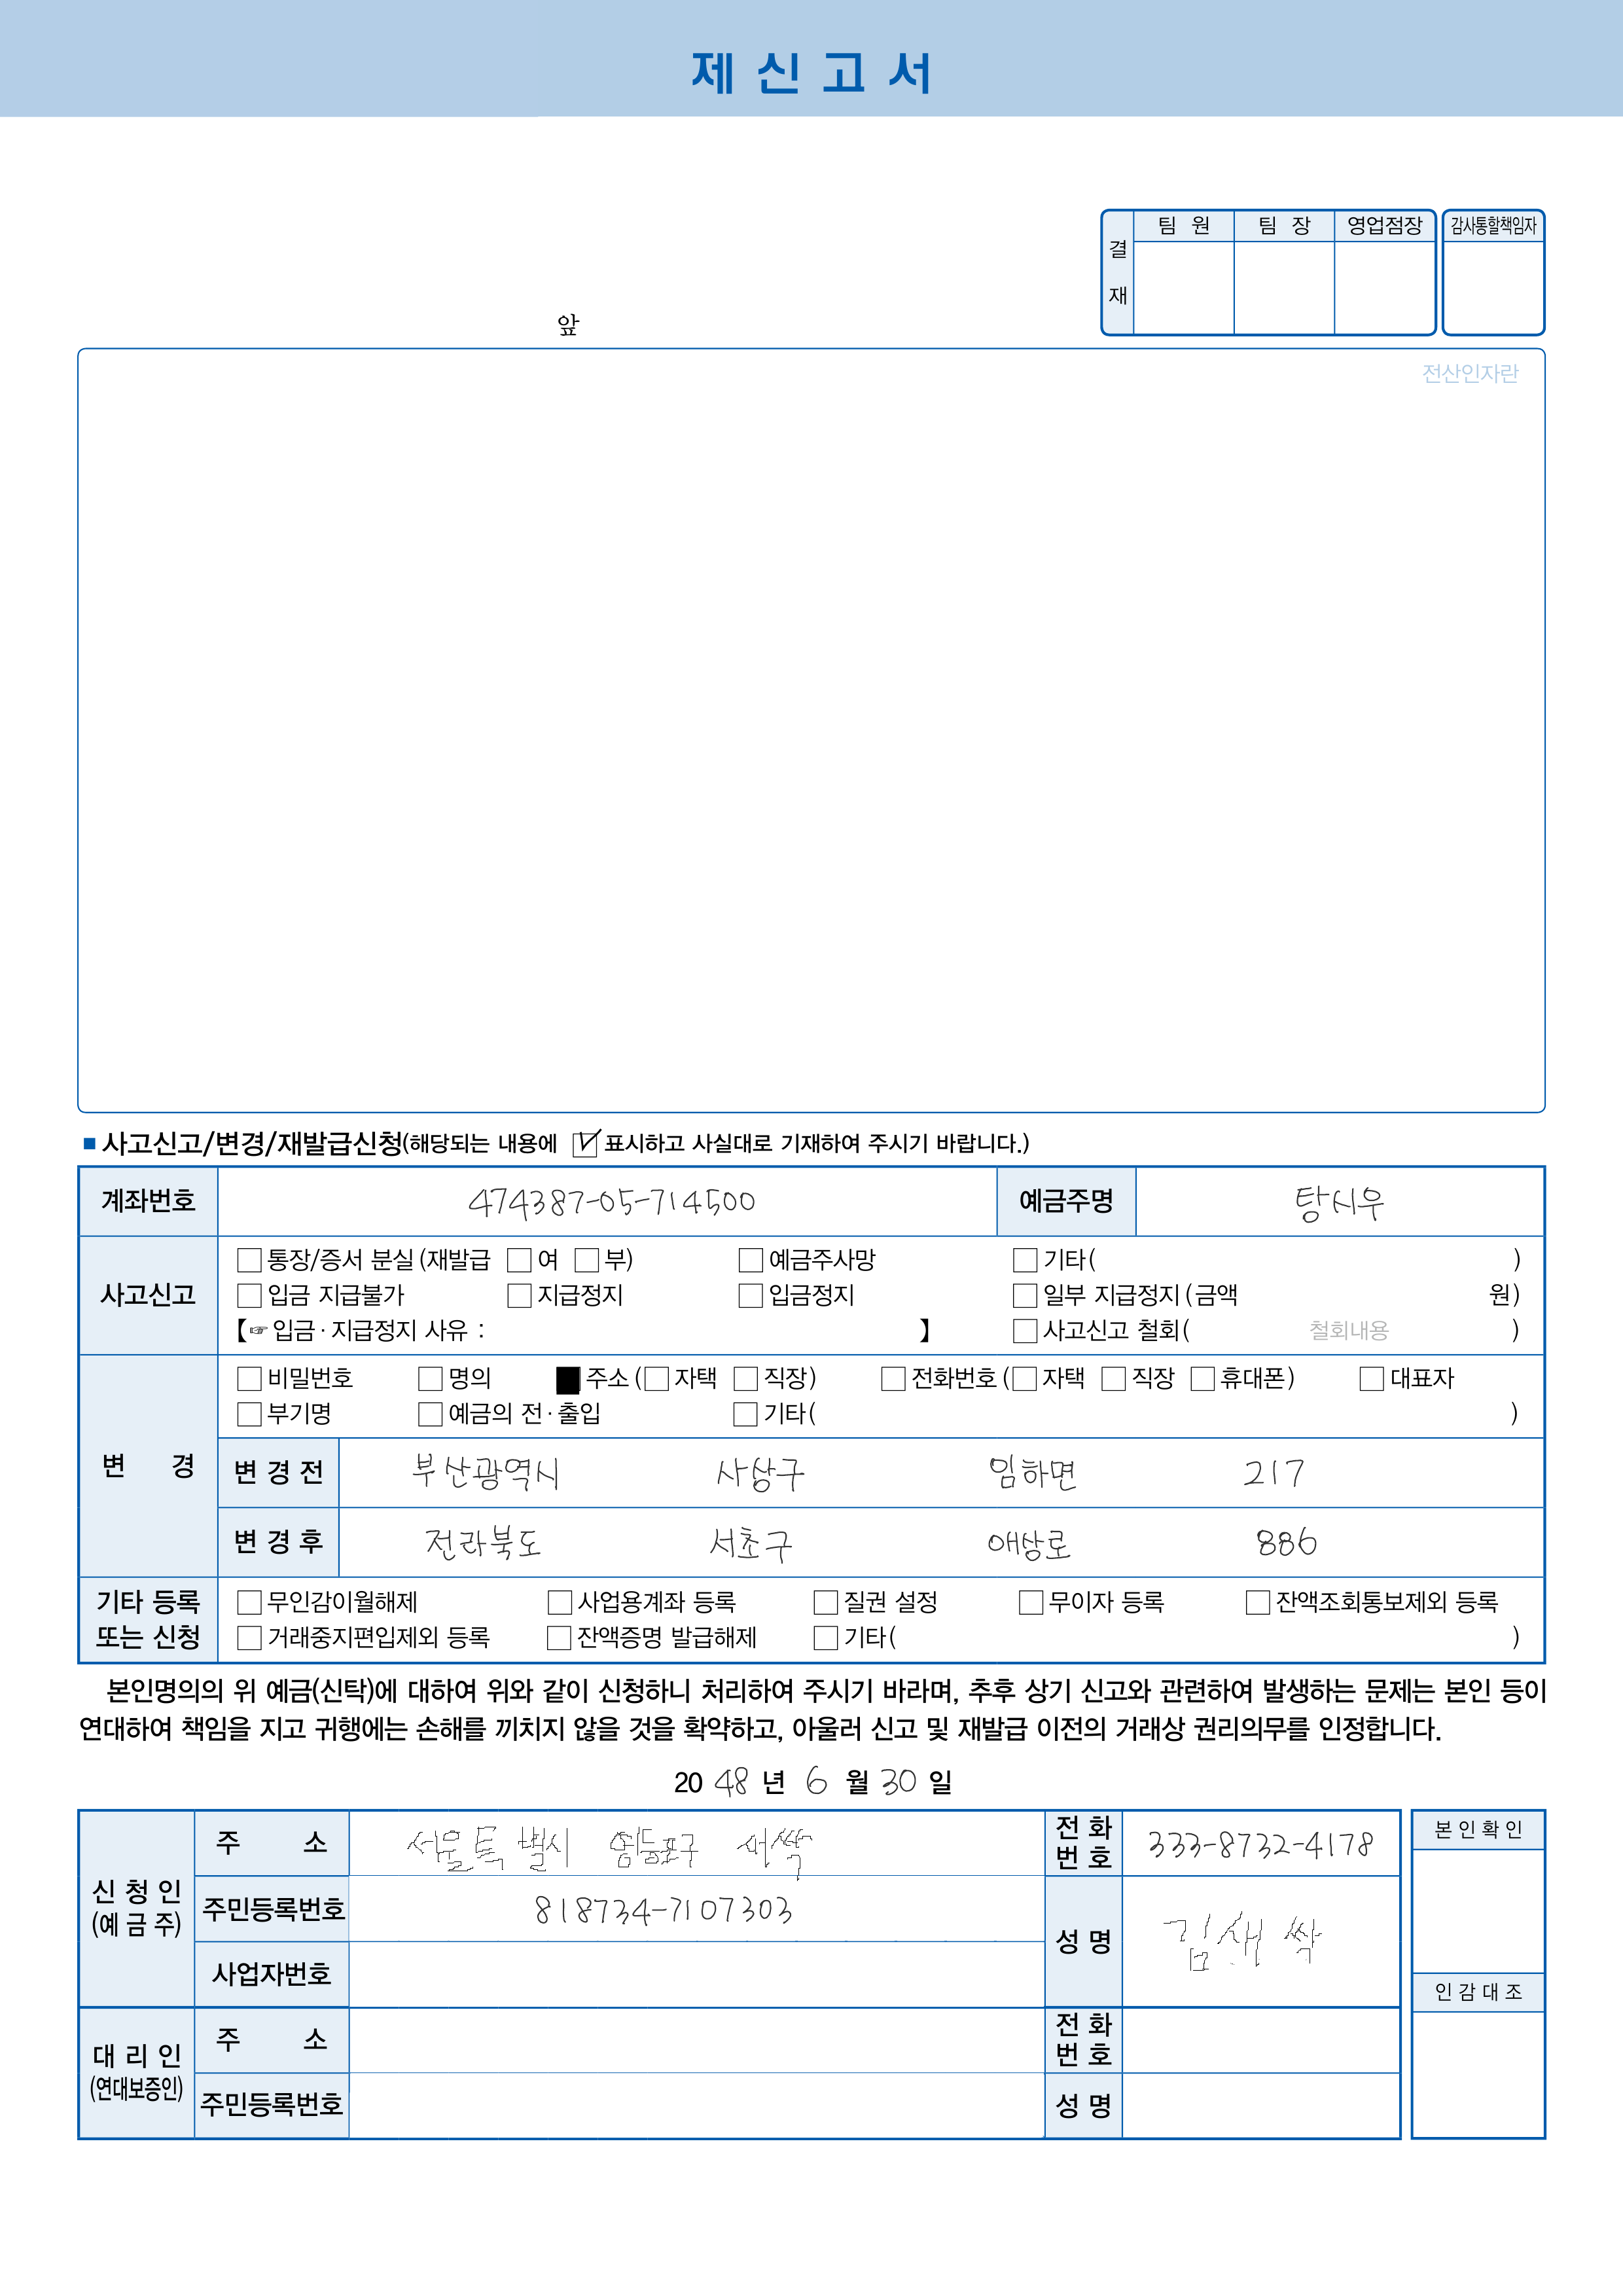 제 신 고 서
결 재
팀 원 팀 장 영업점장 감사통할책임자
앞
전산인자란
■ 사고신고/변경/재발급신청(해당되는 내용에 ☑ 표시하고 사실대로 기재하여 주시기 바랍니다.)
계좌번호 474387-05-714500 예금주명 탕시우
사고신고
□ 통장/증서 분실 (재발급 □ 여 □ 부) □ 예금주사망 □ 기타( )
□ 입금 지급불가 □ 지급정지 □ 입금정지 □ 일부 지급정지 (금액 원)
【☞ 입금·지급정지 사유 : 】 □ 사고신고 철회( 철회내용 )
변 경
□ 비밀번호 □ 명의 ■ 주소 (□ 자택 □ 직장) □ 전화번호 (□ 자택 □ 직장 □ 휴대폰) □ 대표자
□ 부기명 □ 예금의 전·출입 □ 기타( )
변 경 전 부산광역시 사상구 임하면 217
변 경 후 전라북도 서초구 애상로 886
기타 등록 또는 신청
□ 무인감이월해제 □ 사업용계좌 등록 □ 질권 설정 □ 무이자 등록 □ 잔액조회통보제외 등록
□ 거래중지편입제외 등록 □ 잔액증명 발급해제 □ 기타( )
본인명의의 위 예금(신탁)에 대하여 위와 같이 신청하니 처리하여 주시기 바라며, 추후 상기 신고와 관련하여 발생하는 문제는 본인 등이
연대하여 책임을 지고 귀행에는 손해를 끼치지 않을 것을 확약하고, 아울러 신고 및 재발급 이전의 거래상 권리의무를 인정합니다.
20 48 년 6 월 30 일
신 청 인 (예 금 주)
주 소 서울특별시 영등포구 새싹 전 화 번 호 333-8732-4178
주민등록번호 818734-7107303 성 명 김새싹
사업자번호
대 리 인 (연대보증인)
주 소 전 화 번 호
주민등록번호 성 명
본 인 확 인
인 감 대 조